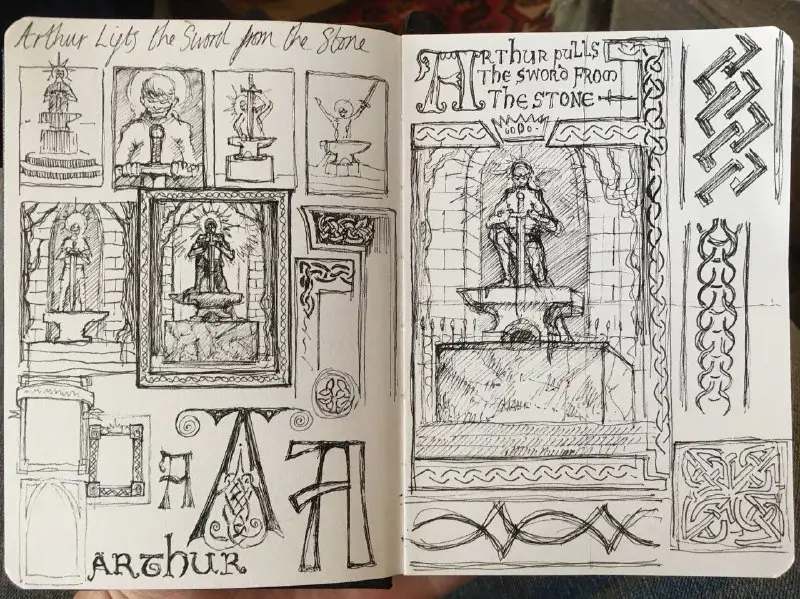 Arthur Lifts the Sword from the Stone
A
A
A
ARTHUR
ARTHUR pulls
The SWORD FROM
The STONE